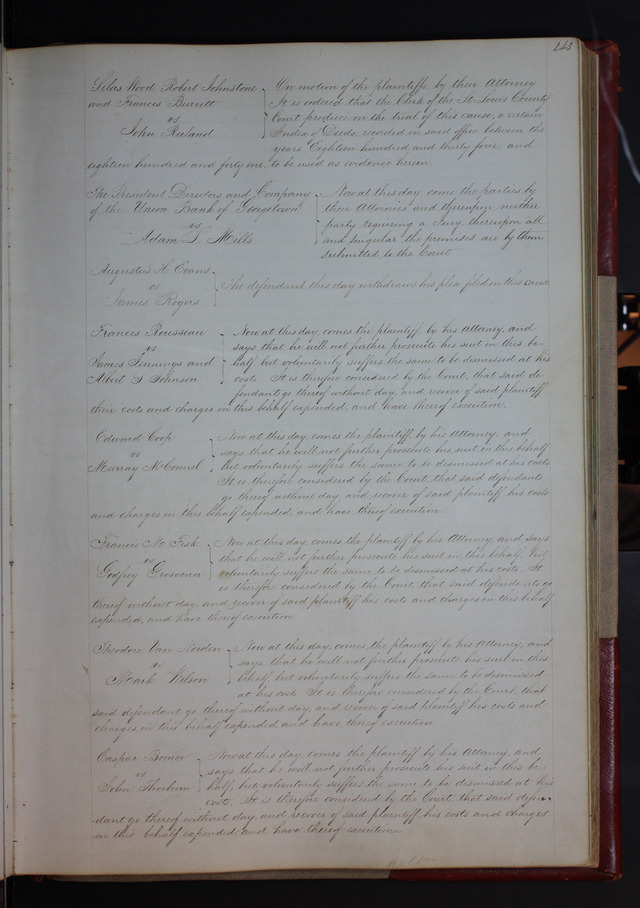 243
Silas Wood Robert Johnstone On motion of the plaintiffs by their Attorney
and Francis Burrett It is ordered that the Clerk of the St. Louis County
vs Court produce on the trial of this cause, a certain
John Ruland Index of Deeds, recorded in said office between the
years Eighteen hundred and thirty four, and
eighteen hundred and forty one, to be used as evidence herein.
The President Directors and Company Now at this day, come the parties by
of the Union Bank of Georgetown their Attornies and thereupon neither
vs party requiring a Jury, thereupon all
Adam L. Mills and singular the premises are by them
submitted to the Court
Augustus H. Evans
vs The defendant this day withdraws his plea filed in this cause
James Rogers
Francis Rousseau Now at this day, comes the plaintiff by his Attorney, and
vs says that he will not further prosecute his suit in this be-
James Jennings and half but voluntarily suffers the same to be dismissed at his
Albert S Johnson costs. It is therefore considered by the Court, that said de-
fendant go thereof without day, and recover of said plaintiff
their costs and charges in this behalf expended, and have thereof execution.
Edward Coop Now at this day, comes the plaintiff by his Attorney, and
vs says that he will not further prosecute his suit in this behalf
Murray McConnel but voluntarily suffers the same, to be dismissed at his costs
It is therefore considered by the Court, that said defendants
go thereof without day, and recover of said plaintiff his costs
and charges in this behalf expended, and have thereof execution
Francis M. Fisk Now at this day, comes the plaintiff by his Attorney, and says
vs that he will not further prosecute his suit in this behalf, but
Godfrey Grosvenor voluntarily suffers the same to be dismissed at his costs. It
is therefore considered by the Court, that said defendants go
thereof without day, and recover of said plaintiff his costs and charges in this behalf
expended, and have thereof execution
Theodore Van Norden Now at this day, comes the plaintiff by his Attorney, and
vs says, that he will not further prosecute his suit in this
Mark Wilson behalf, but voluntarily suffers the same to be dismissed
at his costs It is therefore considered by the Court, that
said defendant go thereof without day, and recover of said plaintiff his costs and
charges in this behalf expended and have thereof execution
Caspar Now at this day comes the plaintiff by his Attorney, and
vs says that he will not further prosecute his suit in this be-
John Thorburn half, but, voluntarily suffers, the same to be dismissed at his
costs. It is therefore considered by the Court, that said defen-
dant go thereof without day, and recover of said plaintiff his costs and charges
in this behalf expended, and have thereof execution.